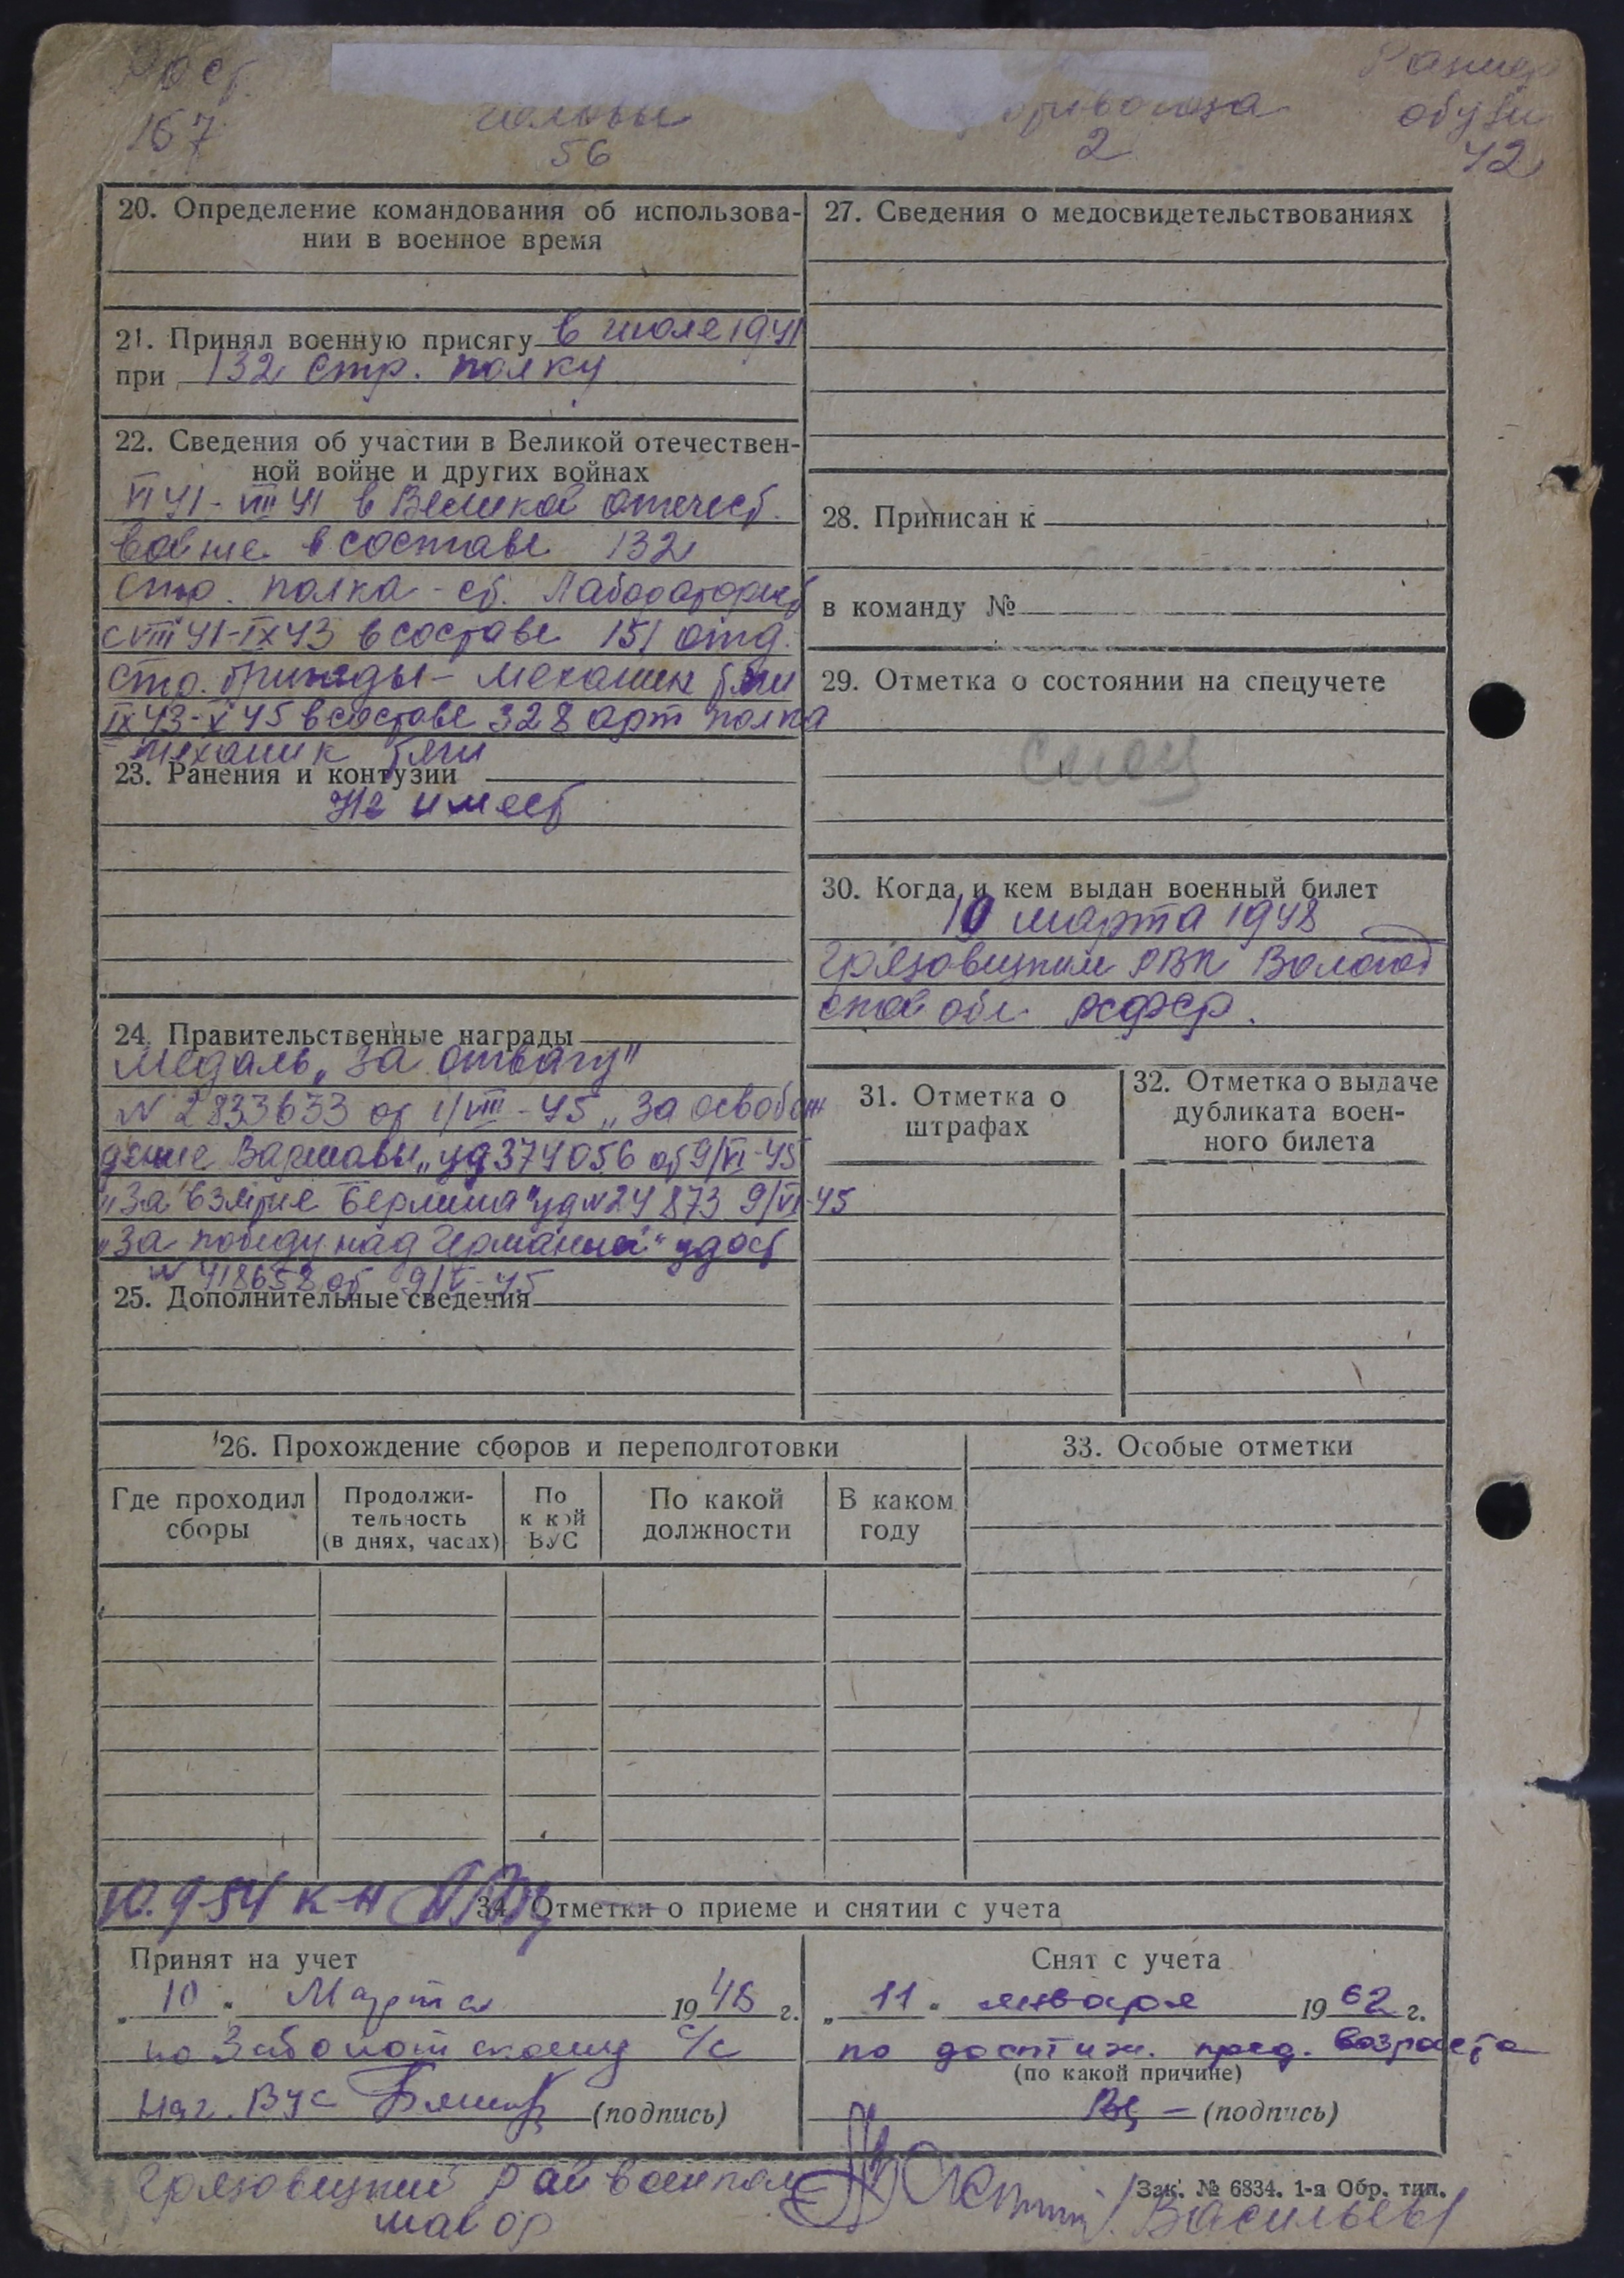 Рост Размер
головы обуви
167 56 2 42
20. Определение командования об использова-
нии в военное время
21. Принял военную присягу в июле 1941
при 132 стр. полку
22. Сведения об участии в Великой отечествен-
ной войне и других войнах
VI 41 - VIII 41 в Великой отечест.
войне в составе 132
стр. полка - ст. Лаборатории
с VIII 41 - IX 43 в составе 151 отд.
стр. бригады - механик тяги
IX 43 - X 45 в составе 328 арт полка
механик тяги
23. Ранения и контузии
Не имеет
24. Правительственные награды
Медаль „За отвагу"
N 2833633 от 1/VIII-45 „За освобож
дение Варшавы„ уд 374056 от 9/VI-45
„За взятие Берлина" уд N 24873 9/VI-45
„За победу над Германией" удост
N 418658 от 9/V-45
25. Дополнительные сведения
27. Сведения о медосвидетельствованиях
28. Приписан к
в команду №
29. Отметка о состоянии на спецучете
30. Когда и кем выдан военный билет
10 марта 1948
Грязовецким РВК Вологод
ской обл. РСФСР.
31. Отметка о
штрафах
32. Отметка о выдаче
дубликата воен-
ного билета
26. Прохождение сборов и переподготовки
Где проходил
сборы
Продолжи-
тельность
(в днях, часах)
По
к кой
ВУС
По какой
должности
В каком
году
33. Особые отметки
10.9-54 к-н
34. Отметки о приеме и снятии с учета
Принят на учет
„ 10 " Марта 1948 г.
по Заболотскому с/с
Нач. ВУС (подпись)
Снят с учета
„ 11 " января 1962 г.
по достиж. пред. возраста
(по какой причине)
(подпись)
Грязовецкий Райвоенком
майор /Васильев/
Зак. № 6834. 1-я Обр. тип.